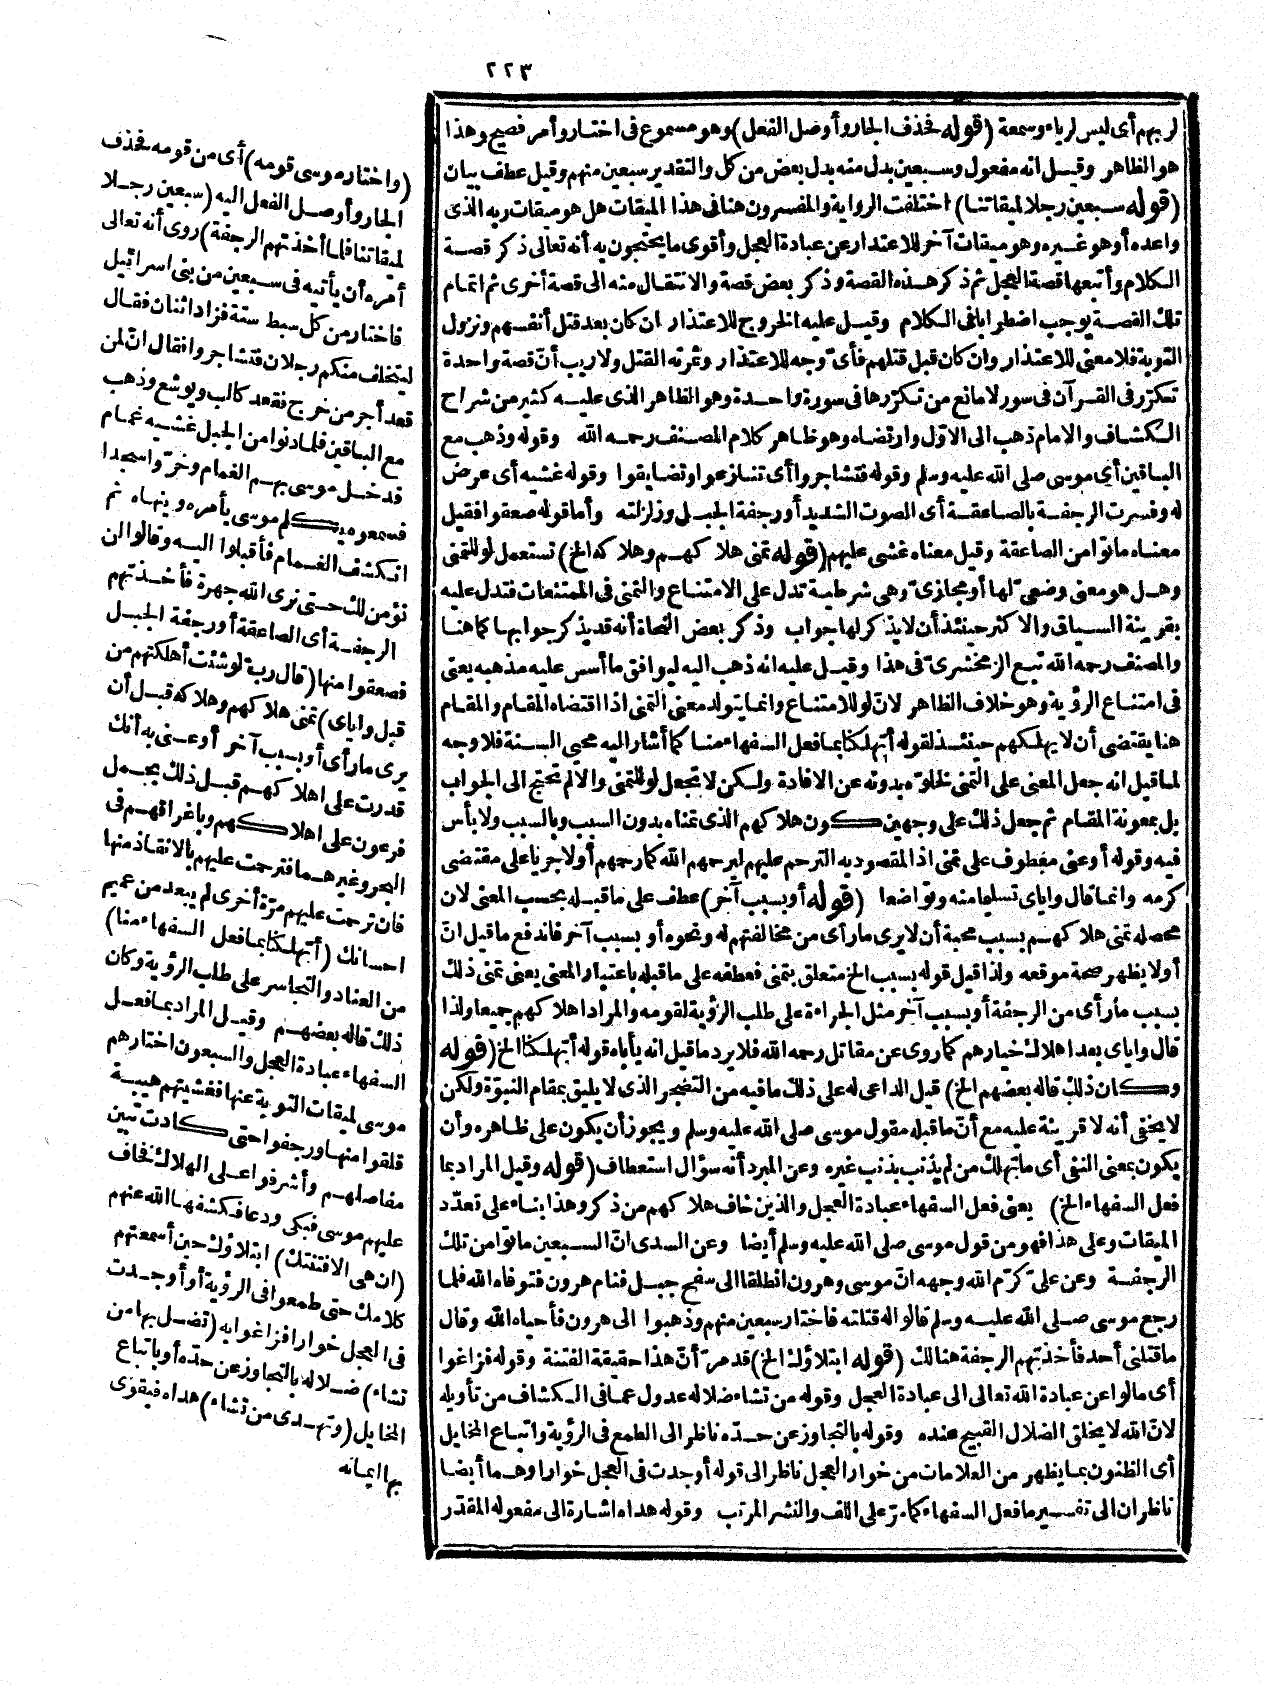 ٢٢٣
لربهم أى ليس لرياء وسمعة (قوله فحذف الجار وأوصل الفعل) وهو مسموع فى اختار وأمر فصيح وهذا
هو الظاهر وقيل انه مفعول وسبعين بدل منه بدل بعض من كل والتقدير سبعين منهم وقيل عطف بيان
(قوله سبعين رجلا لميقاتنا) اختلفت الرواية والمفسرون هنا فى هذا الميقات هل هو ميقات ربه الذى
واعده أو هو غيره وهو ميقات آخر للاعتدار عن عبادة العجل وأقوى ما يحتجون به أنه تعالى ذكر قصة
الكلام وأتبعها قصة العجل ثم ذكر هذه القصة وذكر بعض قصة والانتقال منه الى قصة أخرى ثم اتمام
تلك القصة يوجب اضطرابا فى الكلام وقيل عليه الخروج للاعتذار ان كان بعد قتل أنفسهم ونزول
التوبة فلا معنى للاعتذار وان كان قبل قتلهم فأىّ وجه للاعتذار وثمرته القتل ولا ريب أنّ قصة واحدة
تتكرّر فى القرآن فى سور لا مانع من تكرّرها فى سورة واحدة وهو الظاهر الذى عليه كثير من شراح
الكشاف والامام ذهب الى الاوّل وارتضاه وهو ظاهر كلام المصنف رحمه الله وقوله وذهب مع
الباقين أى موسى صلى الله عليه وسلم وقوله فتشاجروا أى تنازعوا وتضايقوا وقوله غشيه أى عرض
له وفسرت الرجفة بالصاعقة أى الصوت الشديد أو رجفة الجبل وزلزلته وأما قوله صعقوا فقيل
معناه ماتوا من الصاعقة وقيل معناه غشى عليهم (قوله تمنى هلاكهم وهلاكه الخ) تستعمل لو للتمنى
وهل هو معنى وضعىّ لها أو مجازىّ وهى شرطية تدل على الامتناع والتمنى فى الممتنعات فتدل عليه
بقرينة السياق والاكثر حينئذ أن لا يذكر لها جواب وذكر بعض النحاة أنه قد يذكر جوابها كما هنا
والمصنف رحمه الله تبع الزمخشرىّ فى هذا وقيل عليه انه ذهب اليه ليوافق ما أسس عليه مذهبه يعنى
فى امتناع الرؤية وهو خلاف الظاهر لانّ لو للامتناع وانما يتولد معنى التمنى اذا اقتضاه المقام والمقام
هنا يقتضى أن لا يهلكهم حينئذ لقوله أتهلكنا بما فعل السفهاء منا كما أشار اليه محيى السنة فلا وجه
لما قيل انه جعل المعنى على التمنى لخلوّه بدونه عن الافادة ولكن لا تجعل لو للتمنى والا لم تحتج الى الجواب
بل بمعونة المقام ثم جعل ذلك على وجهين كون هلاكهم الذى تمناه بدون السبب وبالسبب ولا بأس
فيه وقوله أو عنى معطوف على تمنى اذ المقصود به الترحم عليهم ليرحمهم الله كما رحمهم أولا جريا على مقتضى
كرمه وانما قال واياى تسليما منه وتواضعا (قوله أو بسبب آخر) عطف على ما قبله بحسب المعنى لان
محصله تمنى هلاكهم بسبب محبة أن لا يرى ما رأى من مخالفتهم له ونحوه أو بسبب آخر فاندفع ما قيل انّ
أولا يظهر صحة موقعه ولذا قيل قوله بسبب الخ متعلق بتمنى فعطفه على ما قبله باعتبار المعنى يعنى تمنى ذلك
بسبب ما رأى من الرجفة أو بسبب آخر مثل الجراءة على طلب الرؤية لقومه والمراد اهلاكهم جميعا ولذا
قال واياى بعد اهلاك خيارهم كما روى عن مقاتل رحمه الله فلا يرد ما قيل انه يأباه قوله أتهلكنا الخ (قوله
وكان ذلك قاله بعضهم الخ) قيل الداعى له على ذلك ما فيه من التضجر الذى لا يليق بمقام النبوّة ولكن
لا يخفى أنه لا قرينة عليه مع أنّ ما قبله مقول موسى صلى الله عليه وسلم ويجوز أن يكون على ظاهره وأن
يكون بمعنى النفى أى ما تهلك من لم يذنب بذنب غيره وعن المبرد أنه سؤال استعطاف (قوله وقيل المراد بما
فعل السفهاء الخ) يعنى فعل السفهاء عبادة العجل والذين خاف هلاكهم من ذكر وهذا بناء على تعدّد
الميقات وعلى هذا فهو من قول موسى صلى الله عليه وسلم أيضا وعن السدى انّ السبعين ماتوا من تلك
الرجفة وعن علىّ كرّم الله وجهه انّ موسى وهرون انطلقا الى سفح جبل فنام هرون فتوفاه الله فلما
رجع موسى صلى الله عليه وسلم قالوا له قتلته فاختار سبعين منهم وذهبوا الى هرون فأحياه الله وقال
ما قتلنى أحد فأخذتهم الرجفة هنالك (قوله ابتلاؤك الخ) قد مرّ أنّ هذا حقيقة الفتنة وقوله فزاغوا
أى مالوا عن عبادة الله تعالى الى عبادة العجل وقوله من تشاء ضلاله عدول عما فى الكشاف من تأويله
لانّ الله لا يخلق الضلال القبيح عنده وقوله بالتجاوز عن حدّه ناظر الى الطمع فى الرؤية واتباع المخايل
أى الظنون بما يظهر من العلامات من خوار العجل ناظر الى قوله أوجدت فى العجل خوارا وهما أيضا
ناظران الى تفسير ما فعل السفهاء كما مرّ على اللف والنشر المرتب وقوله هداه اشارة الى مفعوله المقدّر
(واختار موسى قومه) أى من قومه فحذف
الجار وأوصل الفعل اليه (سبعين رجلا
لميقاتنا فلما أخذتهم الرجفة) روى أنه تعالى
أمره أن يأتيه فى سبعين من بنى اسرائيل
فاختار من كل سبط ستة فزاد اثنان فقال
ليتخلف منكم رجلان فتشاجروا فقال انّ لمن
قعد أجر من خرج فقعد كالب ويوشع وذهب
مع الباقين فلما دنوا من الجبل غشيه غمام
فدخل موسى بهم الغمام وخرّوا سجدا
فسمعوه يكلم موسى يأمره وينهاه ثم
انكشف الغمام فأقبلوا اليه وقالوا لن
نؤمن لك حتى نرى الله جهرة فأخذتهم
الرجفة أى الصاعقة أو رجفة الجبل
فصعقوا منها (قال رب لو شئت أهلكتهم من
قبل واياى) تمنى هلاكهم وهلاكه قبل أن
يرى ما رأى أو بسبب آخر أو عنى به أنك
قدرت على اهلاكهم قبل ذلك بحمل
فرعون على اهلاكهم وباغراقهم فى
البحر وغيرهما فترحمت عليهم بالانقاذ منها
فان ترحمت عليهم مرّة أخرى لم يبعد من عميم
احسانك (أتهلكنا بما فعل السفهاء منا)
من العناد والتجاسر على طلب الرؤية وكان
ذلك قاله بعضهم وقيل المراد بما فعل
السفهاء عبادة العجل والسبعون اختارهم
موسى لميقات التوبة عنها فغشيتهم هيبة
قلقوا منها ورجفوا حتى كادت تبين
مفاصلهم وأشرفوا على الهلاك فخاف
عليهم موسى فبكى ودعا فكشفها الله عنهم
(ان هى الا فتنتك) ابتلاؤك حين أسمعتهم
كلامك حتى طمعوا فى الرؤية أو أوجدت
فى العجل خوارا فزاغوا به (تضل بها من
تشاء) ضلاله بالتجاوز عن حدّه أو باتباع
المخايل (وتهدى من تشاء) هداه فيقوى
بها ايمانه